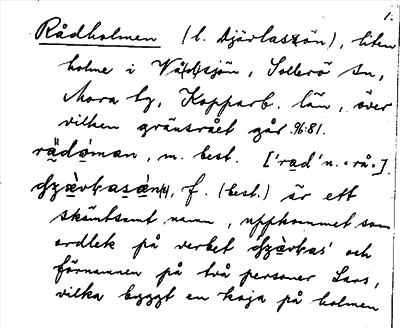 1.
Rådholmen (l. Djävlasön), liten
holme i Vä(l)sjön, Sollerö sn,
Mora tg, Kopparb. län, över
vilken gränsrået går. 96:81.
rädọ̀man, m. best. ['rad' n. "rå".]
f. (best.) är ett
skämtsamt namn, uppkommet som
ordlek på verbet och
förnamnen på två personer Lars,
vilka byggt en koja på holmen